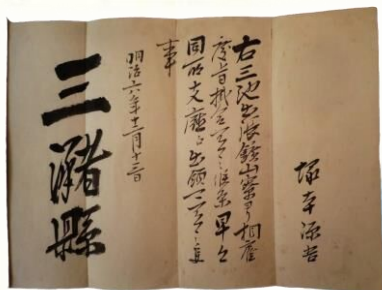 塚本源吾
右三池出張鑛山寮ヨリ相雇
度旨掛合有之候条早々
同所支廳出頭可有之
事
明治六年十二月十三日
三潴縣